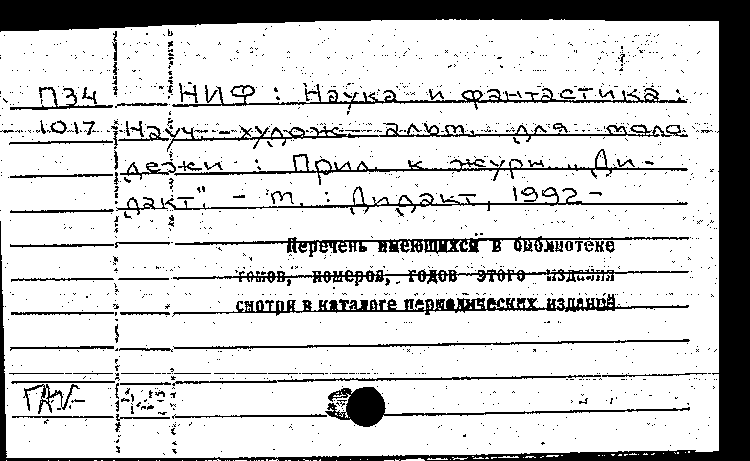 П34 НИФ : Наука и фантастика :
1017 Науч.-худож. альм. для моло
дежи : Прил. к журн. „Ди-
дакт". - М. : Дидакт, 1992-
Перечень имеющихся в библиотеке
томов, номеров, годов этого издания
смотри в каталоге периодических изданий